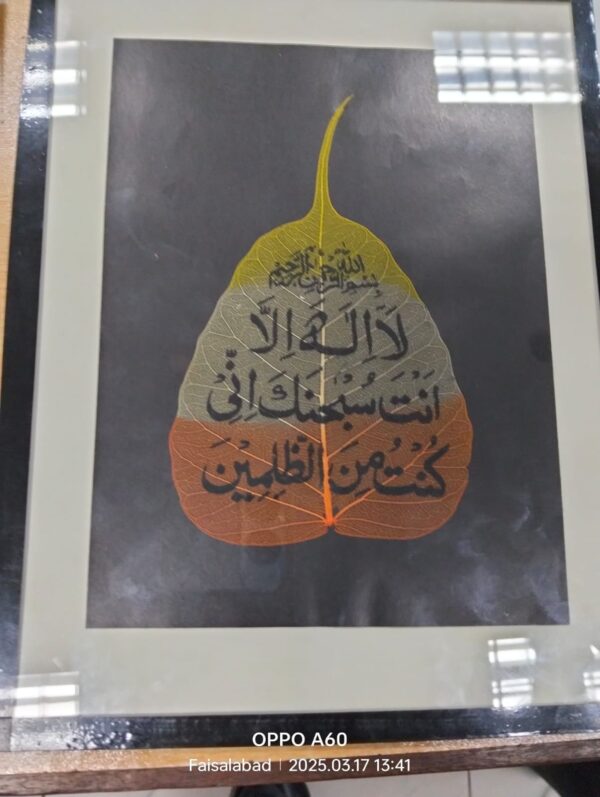 بسم الله الرحمن الرحيم
لَآ اِلٰهَ اِلَّآ
اَنْتَ سُبْحٰنَكَ اِنِّىْ
كُنْتُ مِنَ الظّٰلِمِيْنَ
OPPO A60
Faisalabad | 2025.03.17 13:41